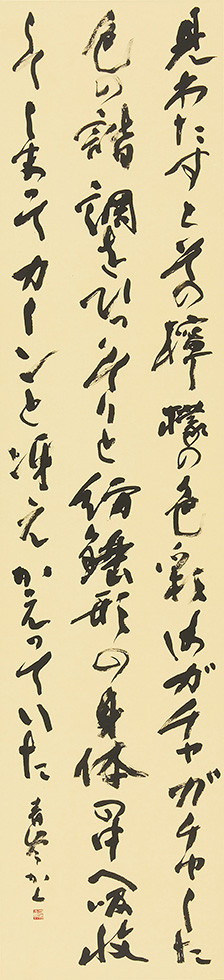 見わたすとその檸檬の色彩はガチャガチャした
色の諧調をひっそりと紡錘形の身体の中へ吸收
してしまってカーンと冴えかえっていた 青岑かく